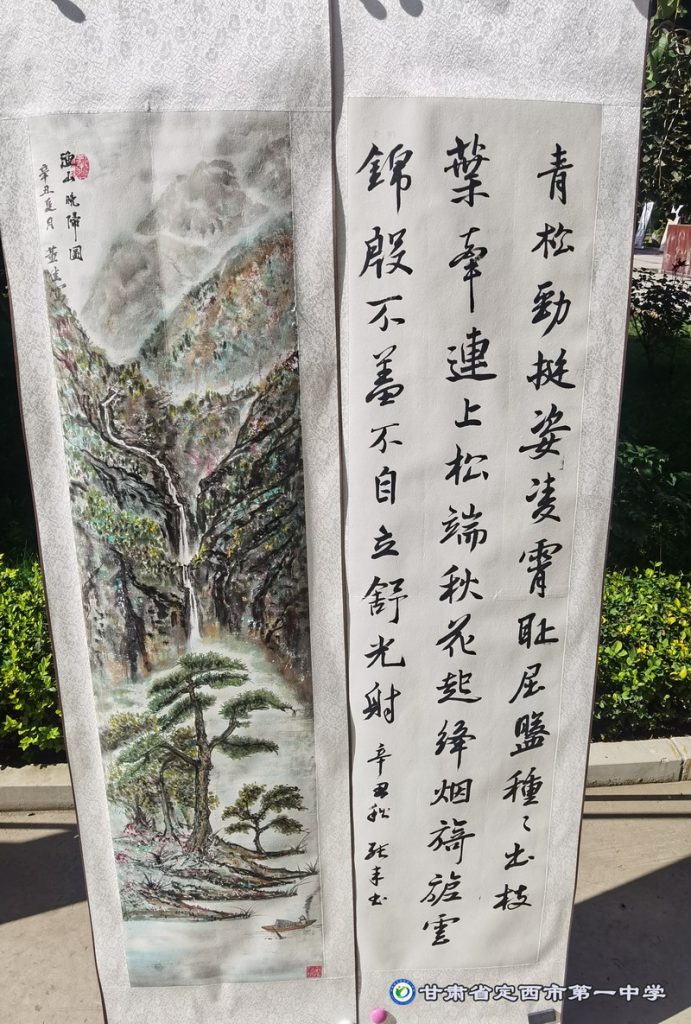 青松勁挺姿凌霄耻屈盤種〻出枝
葉牽連上松端秋花起絳烟旖旎雲
錦殷不羞不自立舒光射
辛丑秋 張 書
晚歸圖
辛丑夏月 董
甘肃省定西市第一中学